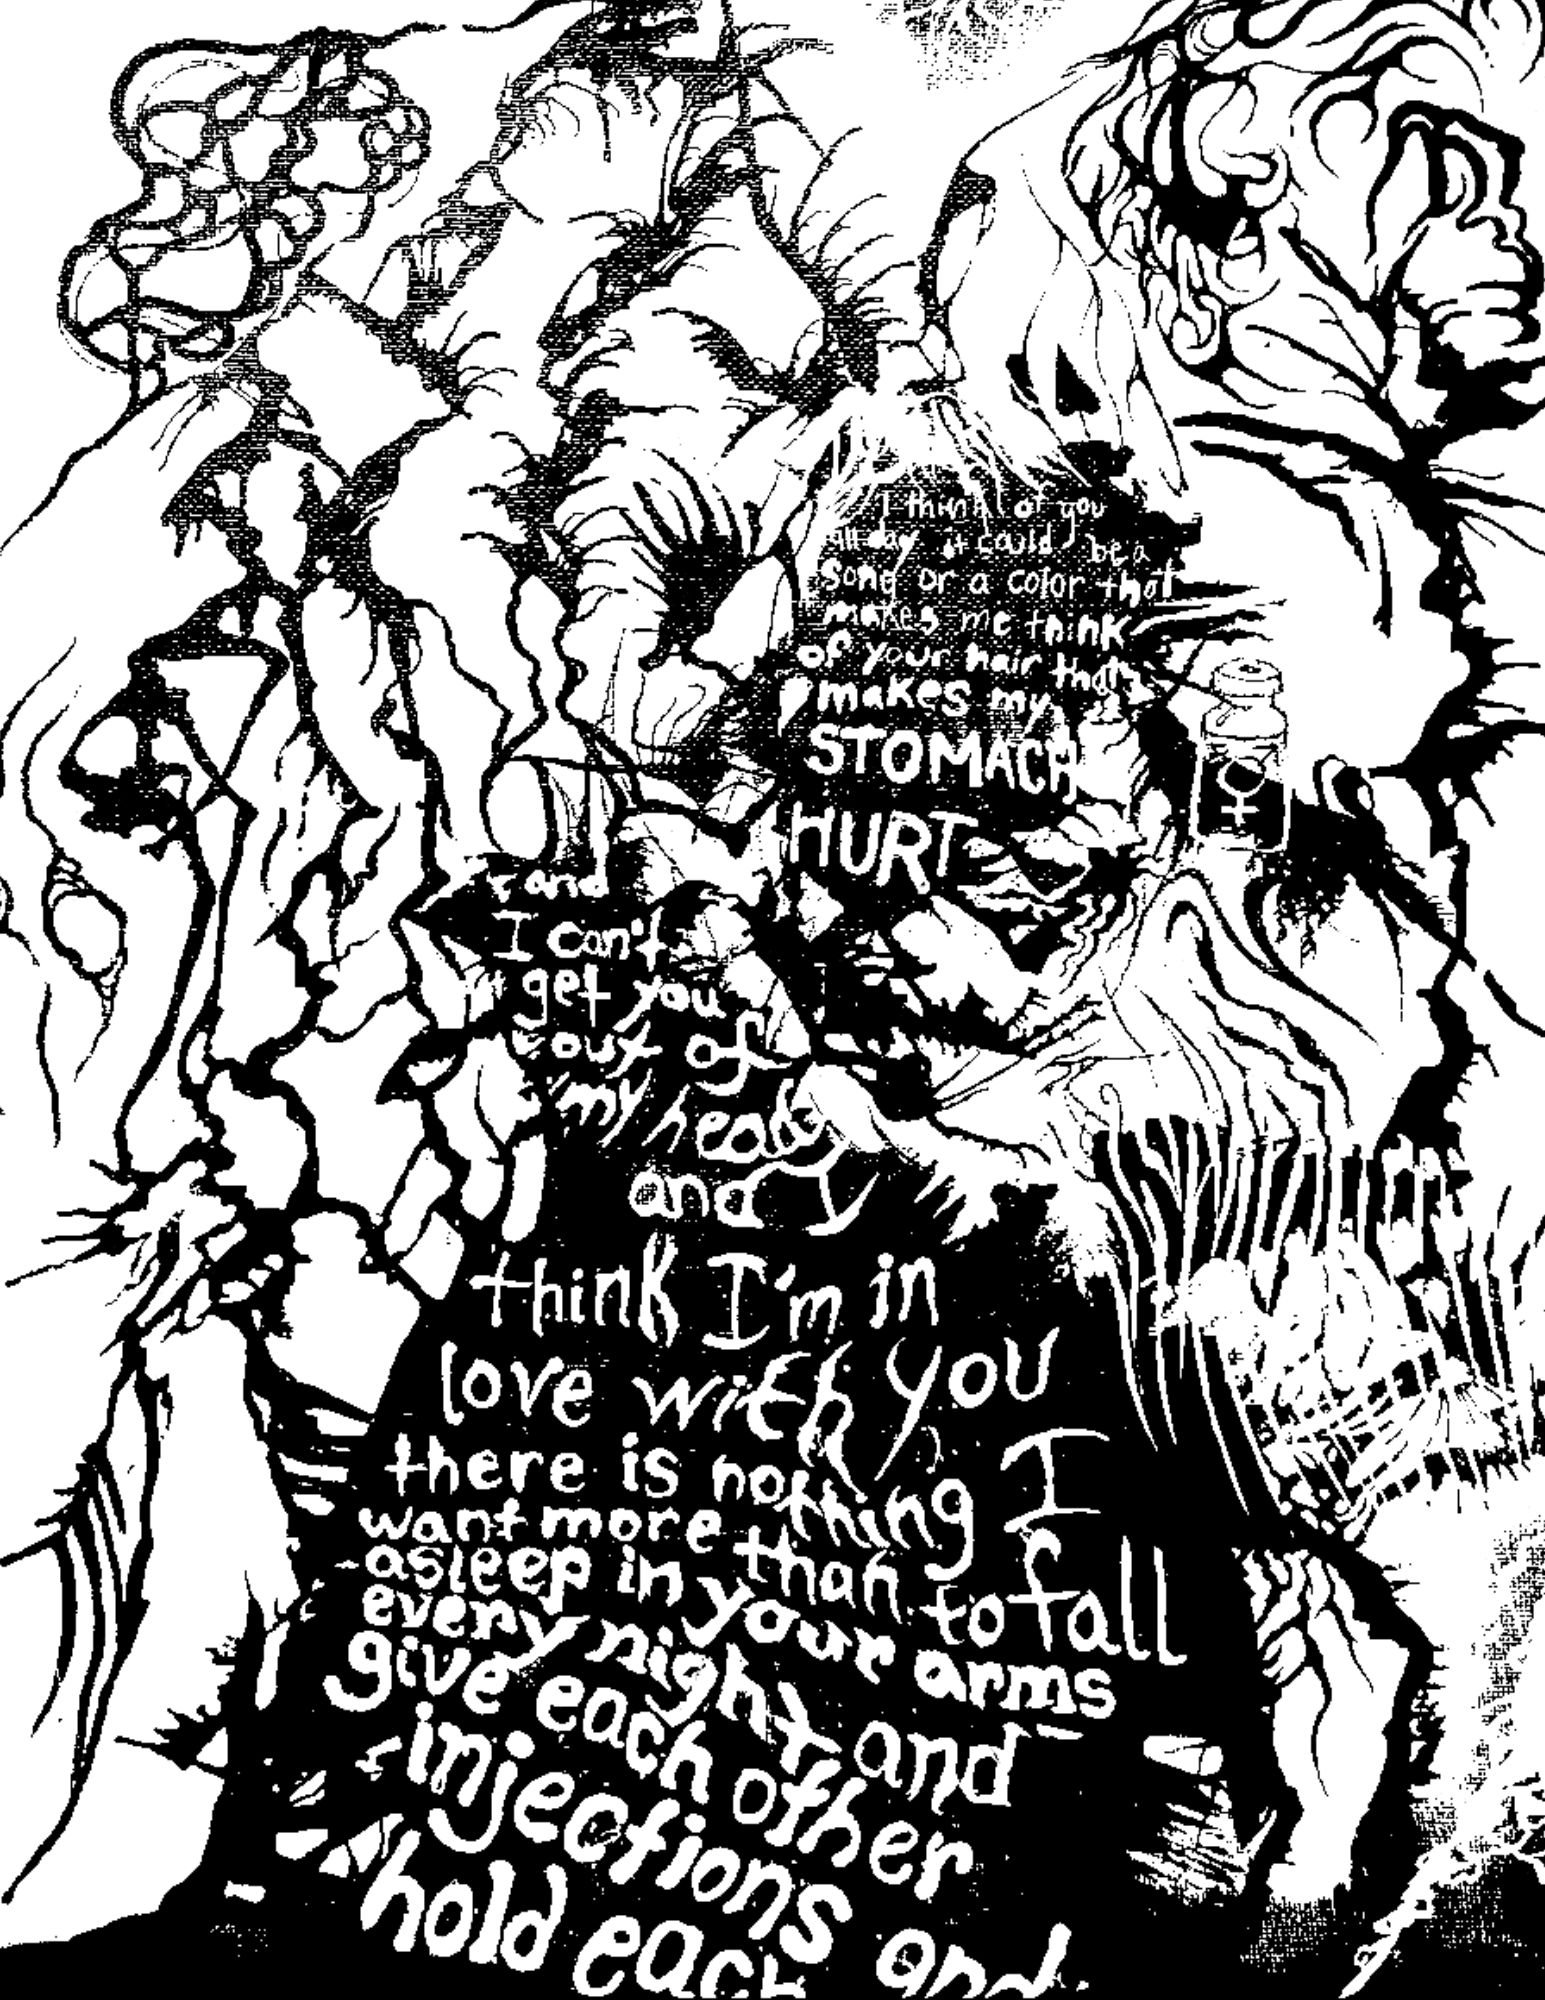 I think of you
all day it could be a
song or a color that
makes me think
of your hair that
makes my
STOMACH
HURT
and
I can't
get you
out of
my head
and I
think I'm in
love with you
there is nothing I
want more than to fall
asleep in your arms
every night and
give each other
injections and
hold each